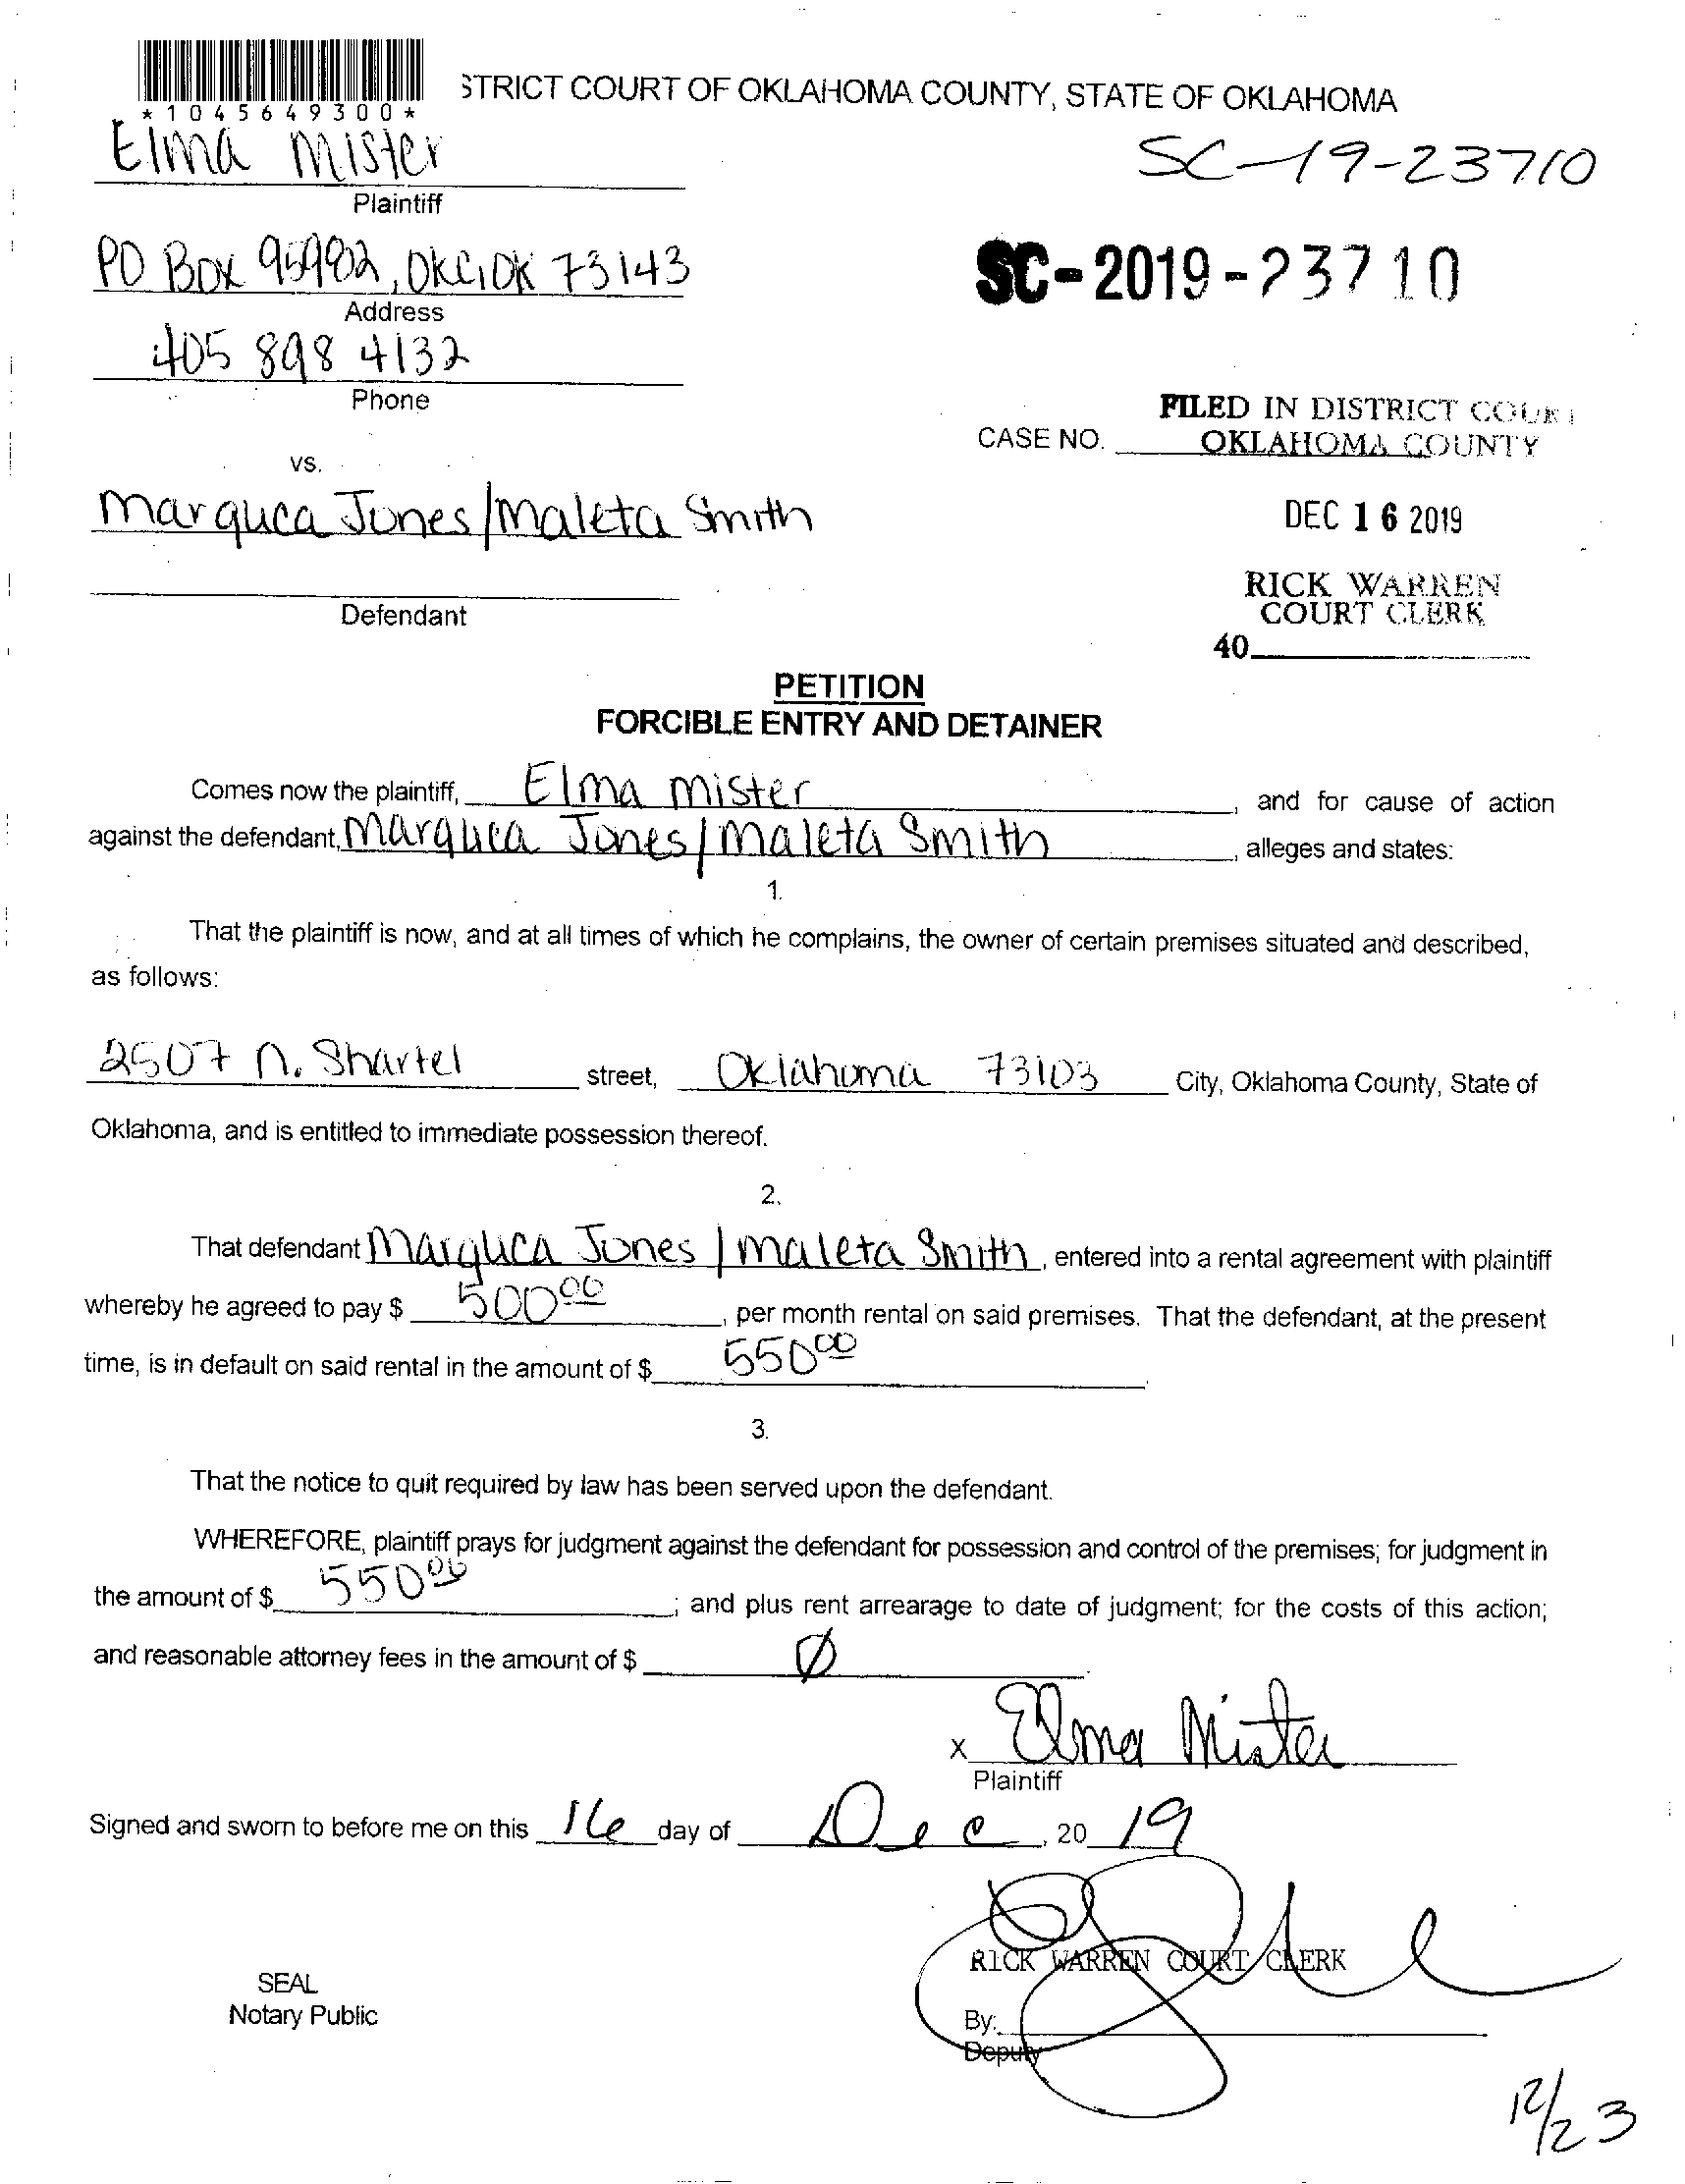 *1045649300*
STRICT COURT OF OKLAHOMA COUNTY, STATE OF OKLAHOMA
Elma Mister
SC-19-23710
Plaintiff
PO Box 95982, OKC, OK 73143
SC-2019-23710
Address
405 898 4132
Phone
FILED IN DISTRICT COURT
CASE NO. OKLAHOMA COUNTY
vs.
Marquca Jones/Maleta Smith
DEC 16 2019
RICK WARREN
Defendant
COURT CLERK
40
PETITION
FORCIBLE ENTRY AND DETAINER
Comes now the plaintiff, Elma Mister, and for cause of action
against the defendant, Marquca Jones/Maleta Smith, alleges and states:
1.
That the plaintiff is now, and at all times of which he complains, the owner of certain premises situated and described,
as follows:
2507 N. Shartel street, Oklahoma 73103 City, Oklahoma County, State of
Oklahoma, and is entitled to immediate possession thereof.
2.
That defendant Marquca Jones/Maleta Smith, entered into a rental agreement with plaintiff
whereby he agreed to pay $ 500 00, per month rental on said premises. That the defendant, at the present
time, is in default on said rental in the amount of $ 550 00
3.
That the notice to quit required by law has been served upon the defendant.
WHEREFORE, plaintiff prays for judgment against the defendant for possession and control of the premises; for judgment in
the amount of $ 550 00; and plus rent arrearage to date of judgment; for the costs of this action;
and reasonable attorney fees in the amount of $ Ø
x Elma Mister
Plaintiff
Signed and sworn to before me on this 16 day of Dec, 20 19
RICK WARREN COURT CLERK
SEAL
Notary Public
By:
Deputy
12/23